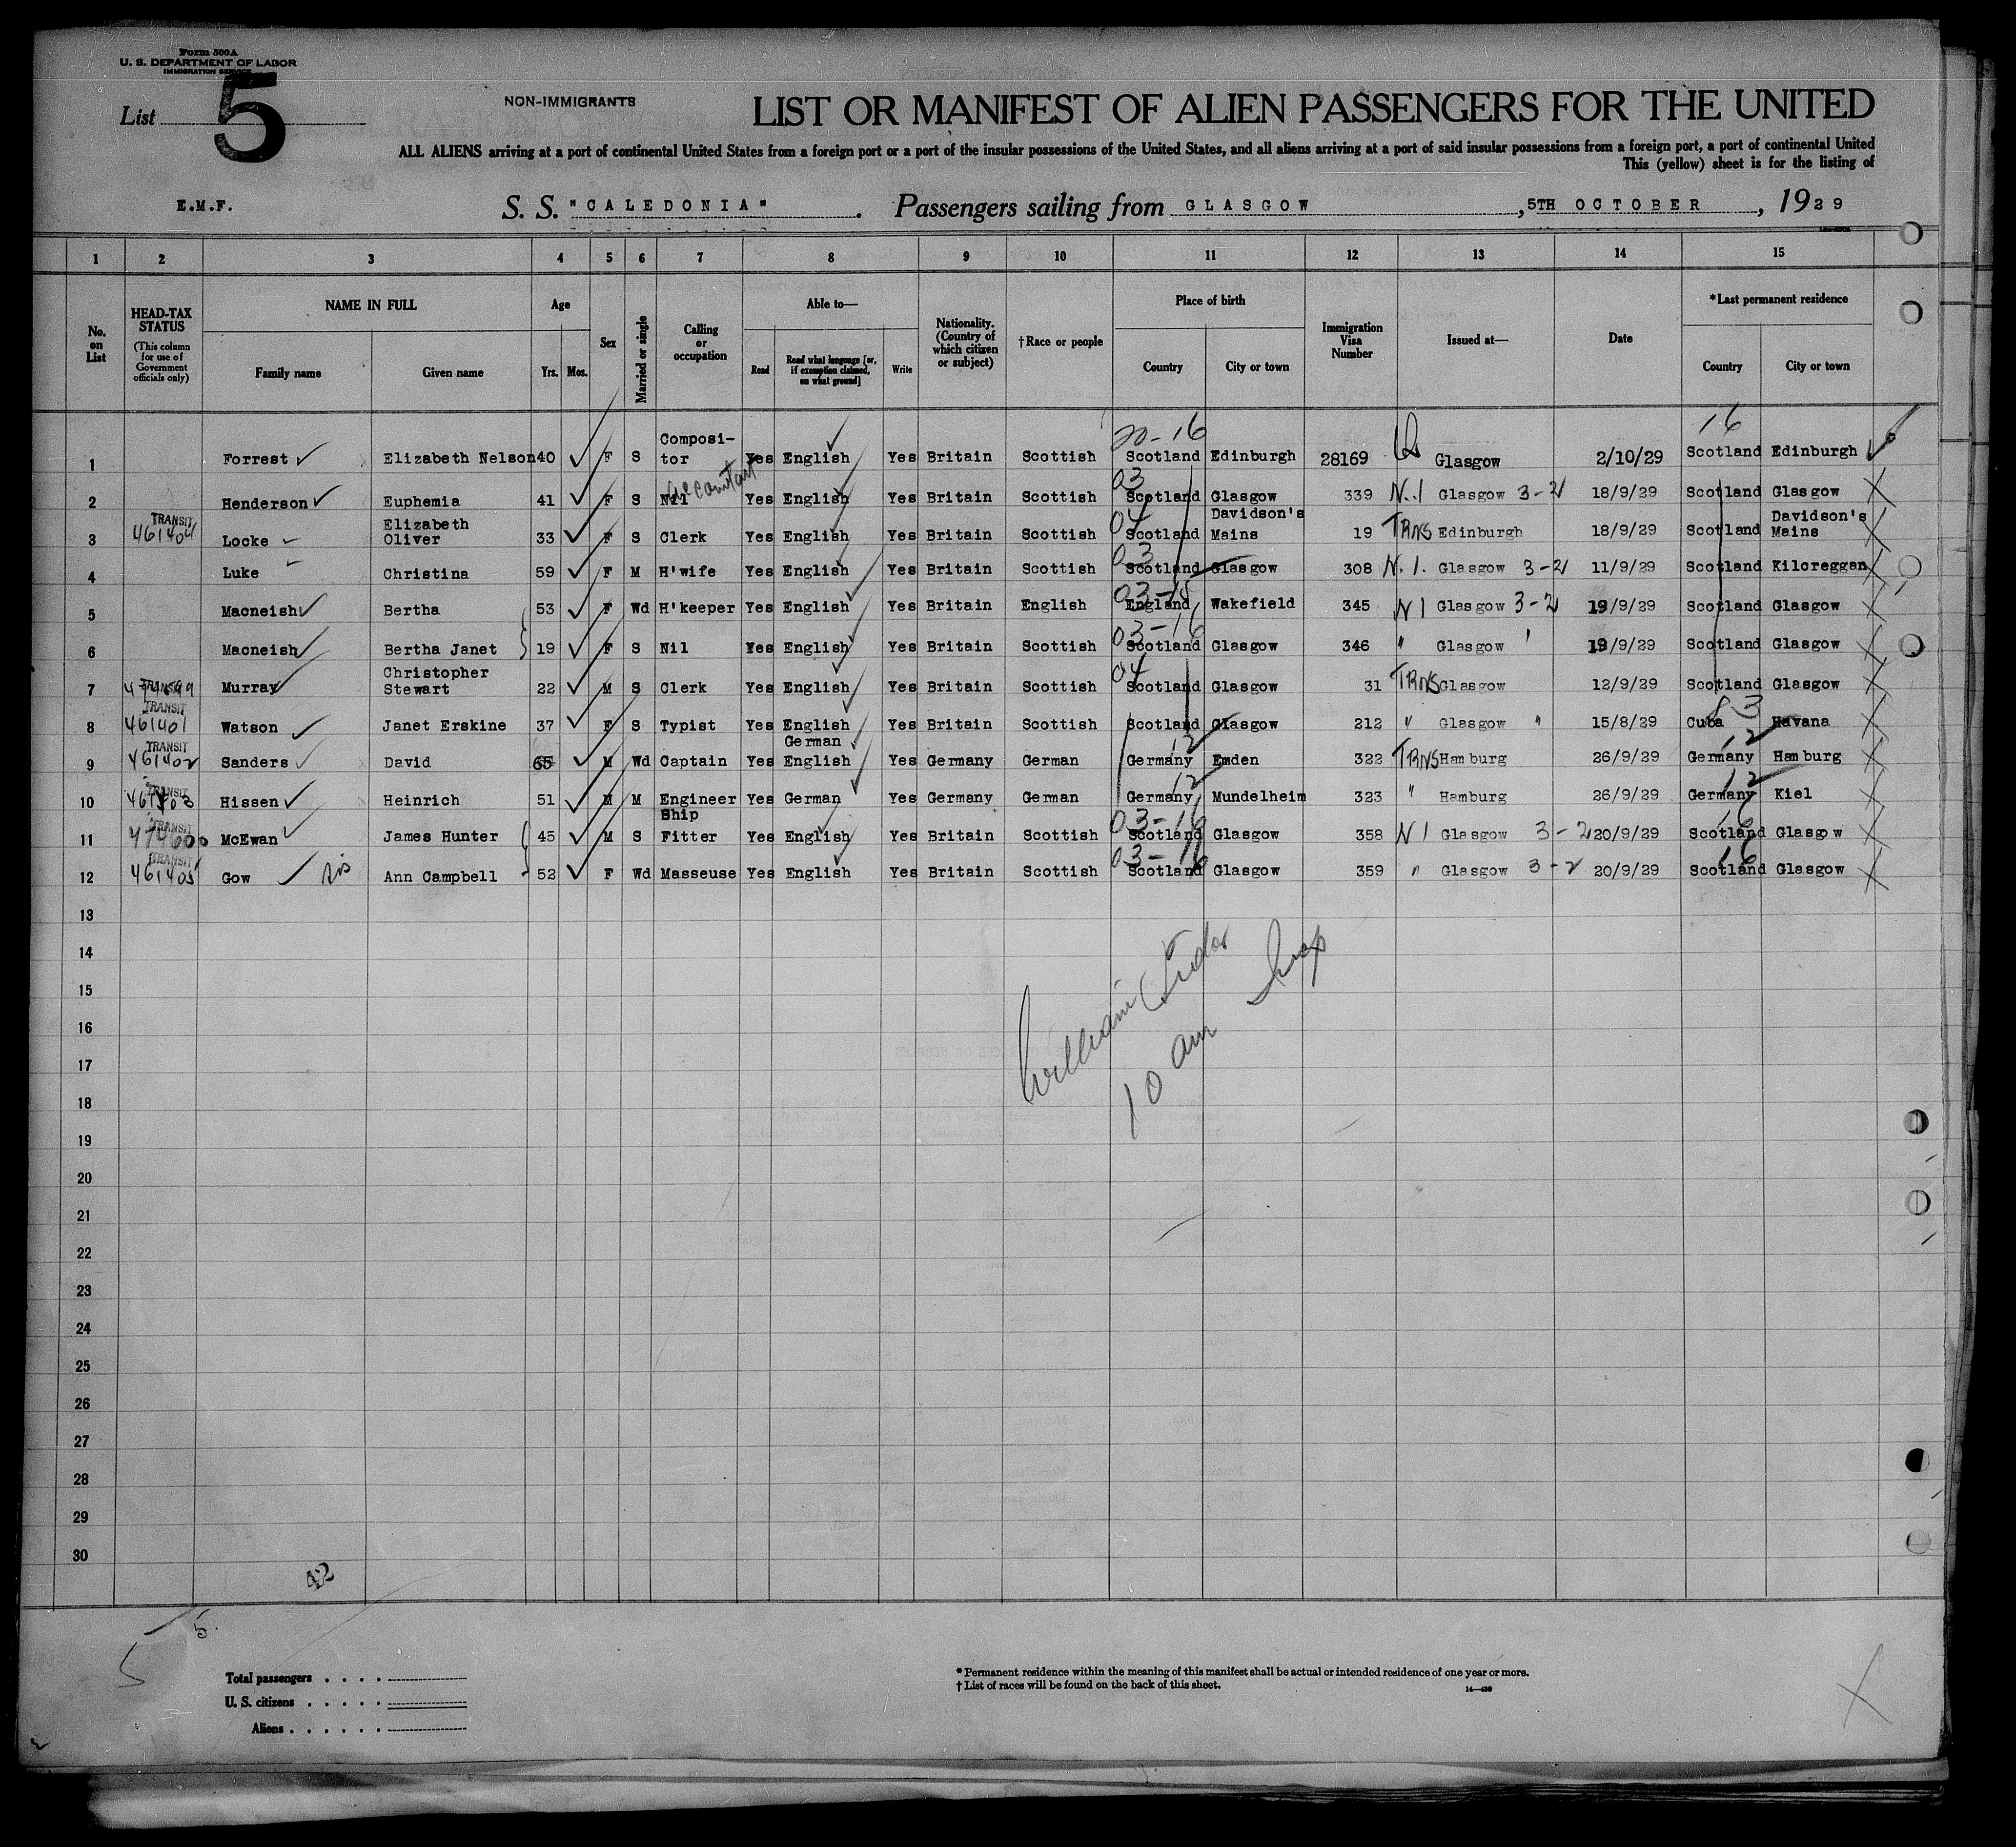 Form 500A
U. S. DEPARTMENT OF LABOR
IMMIGRATION SERVICE
List 5
NON-IMMIGRANTS
LIST OR MANIFEST OF ALIEN PASSENGERS FOR THE UNITED
ALL ALIENS arriving at a port of continental United States from a foreign port or a port of the insular possessions of the United States, and all aliens arriving at a port of said insular possessions from a foreign port, a port of continental United
This (yellow) sheet is for the listing of
E.M.F.
S. S. "CALEDONIA". Passengers sailing from GLASGOW, 5TH OCTOBER, 1929
1 2 3 4 5 6 7 8 9 10 11 12 13 14 15
No. on List
HEAD-TAX STATUS
(This column for use of Government officials only)
NAME IN FULL
Family name
Given name
Age
Yrs. Mos.
Sex
Married or single
Calling or occupation
Able to—
Read
Read what language [or, if exemption claimed, on what ground]
Write
Nationality. (Country of which citizen or subject)
†Race or people
Place of birth
Country
City or town
Immigration Visa Number
Issued at—
Date
*Last permanent residence
Country
City or town
1 Forrest Elizabeth Nelson 40 F S Compositor Yes English Yes Britain Scottish 20-16 Scotland Edinburgh 28169 Glasgow 2/10/29 16 Scotland Edinburgh
2 Henderson Euphemia 41 F S Nil Accountant Yes English Yes Britain Scottish 03 Scotland Glasgow 339 N.1 Glasgow 3-2 18/9/29 Scotland Glasgow
3 TRANSIT 461404 Locke Elizabeth Oliver 33 F S Clerk Yes English Yes Britain Scottish 04 Scotland Davidson's Mains 19 TRNS Edinburgh 18/9/29 Scotland Davidson's Mains
4 Luke Christina 59 F M H'wife Yes English Yes Britain Scottish 03 Scotland Glasgow 308 N.1. Glasgow 3-2 11/9/29 Scotland Kilcreggan
5 Macneish Bertha 53 F Wd H'keeper Yes English Yes Britain English 03-15 England Wakefield 345 N1 Glasgow 3-2 19/9/29 Scotland Glasgow
6 Macneish Bertha Janet 19 F S Nil Yes English Yes Britain Scottish 03-16 Scotland Glasgow 346 " Glasgow ' 19/9/29 Scotland Glasgow
7 TRANSIT Murray Christopher Stewart 22 M S Clerk Yes English Yes Britain Scottish 04 Scotland Glasgow 31 TRNS Glasgow 12/9/29 Scotland Glasgow
8 TRANSIT 461401 Watson Janet Erskine 37 F S Typist Yes English Yes Britain Scottish Scotland Glasgow 212 " Glasgow " 15/8/29 Cuba 83 Havana
9 TRANSIT 461402 Sanders David 65 M Wd Captain Yes German English Yes Germany German 12 Germany Emden 322 TRNS Hamburg 26/9/29 12 Germany Hamburg
10 TRANSIT 461403 Hissen Heinrich 51 M M Engineer Yes German Yes Germany German 12 Germany Mundelheim 323 " Hamburg 26/9/29 12 Germany Kiel
11 TRANSIT McEwan James Hunter 45 M S Ship Fitter Yes English Yes Britain Scottish 03-16 Scotland Glasgow 358 N1 Glasgow 3-2 20/9/29 16 Scotland Glasgow
12 TRANSIT 461405 Gow sis Ann Campbell 52 F Wd Masseuse Yes English Yes Britain Scottish 03-16 Scotland Glasgow 359 " Glasgow 3-2 20/9/29 16 Scotland Glasgow
13
14
15
16
17
18
19
20
21
22
23
24
25
26
27
28
29
30
William
10 am Insp
42
5
5
Total passengers . . . .
U. S. citizens . . . . .
Aliens . . . . . .
* Permanent residence within the meaning of this manifest shall be actual or intended residence of one year or more.
† List of races will be found on the back of this sheet.